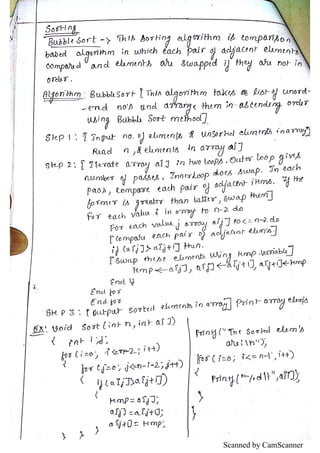 Sorting
Bubble Sort -> This sorting algorithm is comparison
based algorithm in which each pair of adjacent elements
compared and elements are swapped if they are not in
order.
Algorithm: Bubble Sort [This algorithm takes a list of unord-
-end no's and arrange them in ascending order
using Bubble Sort method].
Step 1: [Input no. of elements & unsorted elements in array]
Read n, & elements in array a[]
Step 2: [Iterate array a[] in two loops. Outer loop gives
number of passes. Innerloop does swap. In each
pass, compare each pair of adjacent items. If the
former is greater than latter, swap them]
For each value i in array to n-2 do
For each value j array a[j] to <= n-2 do
[Compare each pair of adjacent elems]
if (a[j] > a[j+1] then.
[Swap these elements using temp. variable]
temp <- a[j], a[j] <- a[j+1], a[j+1] <- temp
End if
2. End for
End for
Step 3: [Output sorted elements in array] Print array elems
Ex: Void Sort (int n, int a[])
{ int i,j;
for (i=0; i<=n-2; i++)
{ for (j=0; j<=n-i-2; j++)
{ if (a[j]>a[j+1])
{
temp = a[j];
a[j] = a[j+1];
a[j+1] = temp;
} } }
printf("The Sorted elem's
are:\n");
for (i=0; i<=n-1, i++)
{
printf("%d\t", a[i]);
}
}
Scanned by CamScanner